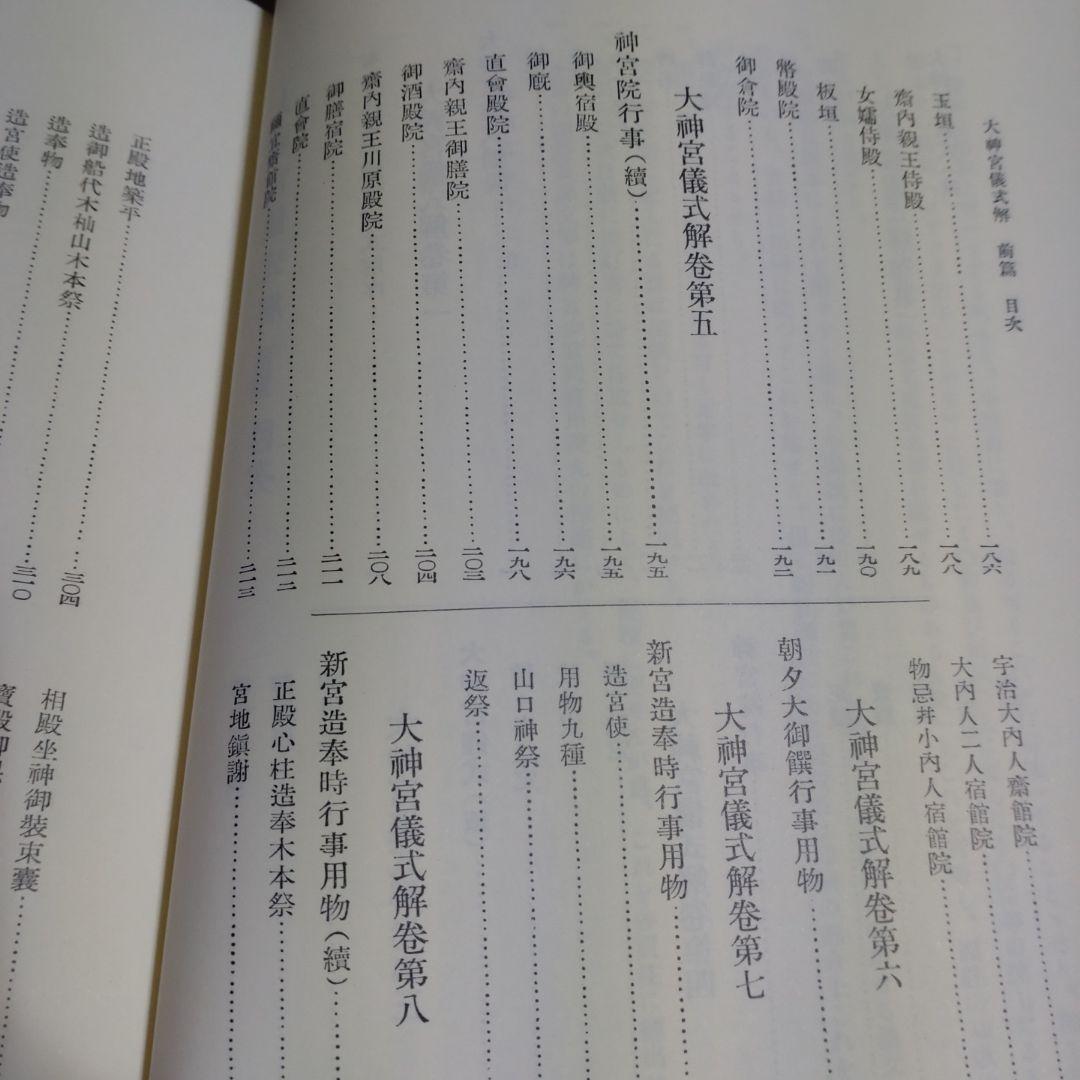 大神宮儀式解 前篇 目次
玉垣……一八六
齋內親王侍殿……一八八
女嬬侍殿……一八九
板垣……一九〇
幣殿院……一九一
御倉院……一九二
大神宮儀式解卷第五
神宮院行事(續)……一九五
御輿宿殿……一九五
御厩……一九六
直會殿院……一九八
齋內親王御膳院……二〇三
御酒殿院……二〇四
齋內親王川原殿院……二〇八
御膳宿院……二一一
直會院……二一二
院……二一三
宇治大內人齋館院……
大內人二人宿館院……
物忌幷小內人宿館院……
大神宮儀式解卷第六
朝夕大御饌行事用物……
大神宮儀式解卷第七
新宮造奉時行事用物……
造宮使……
用物九種……
山口神祭……
返祭……
大神宮儀式解卷第八
新宮造奉時行事用物(續)……
正殿心柱造奉木本祭……
宮地鎭謝……
正殿地築平……三〇四
造御船代木杣山木本祭……三一〇
造奉物……
造宮使造奉物
相殿坐神御裝束囊……
寶殿御